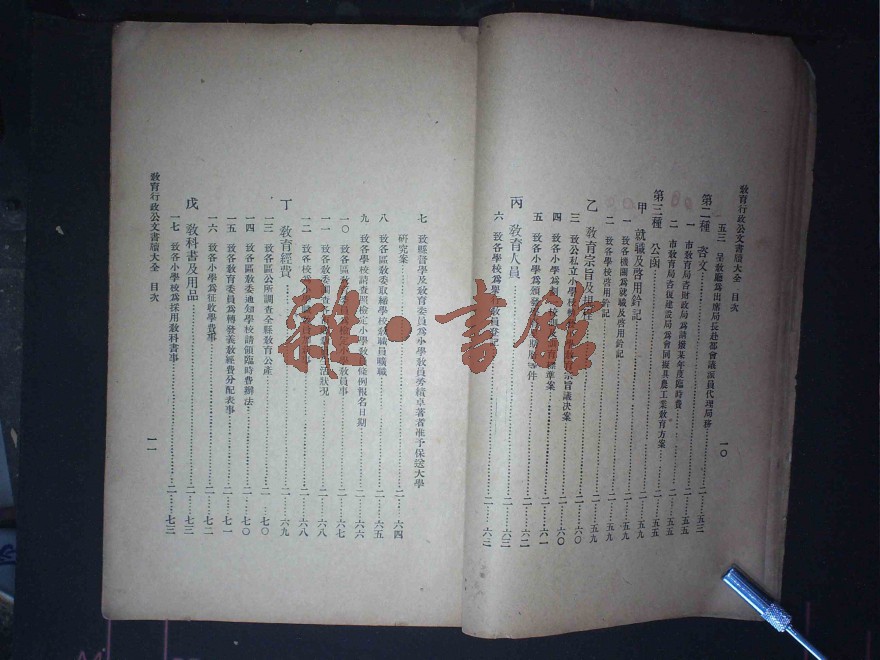 教育行政公文書牘大全 目次
一〇
五三 呈教廳為出席局長赴都會議派員代理局務……二……五三
第二種 咨文……二……五五
一 市教育局咨財政局為請撥某年度臨時費……二……五五
二 市教育局咨復建設局為會同擬具農工業教育方案……二……五五
第三種 公函……二……五九
甲 就職及啓用鈐記……二……五九
一 致各機關為就職及啓用鈐記……二……五九
二 致各學校啓用鈐記……二……五九
乙 教育宗旨及
三 致公私立小學校 宗旨議決案……二……六〇
四 致各小學為 標準案……二……六〇
五 致各小學為頒發 事件……二……六一
丙 教育人員……二……六二
六 致各學校為舉行教員登記……二……六二
七 致縣督學及教育委員為小學教員勞績卓著者准予保送大學
研究案……二……六四
八 致各區教委取締學校教職員曠職……二……六五
九 致各學校請查照檢定小學教員條例報名日期……二……六六
一〇 致各區教委 檢 小 教員事……二……六七
一一 致各教委調查 活狀況……二……六八
一二 致各校為……二……六八
丁 教育經費……二……六九
一三 致各區公所調查全縣教育公產……二……七〇
一四 致各區教委通知學校請領臨時費辦法……二……七〇
一五 致各教育委員為轉發義教經費分配表事……二……七一
一六 致各小學為征收學費事……二……七二
戊 教科書及用品……二……七三
一七 致各小學校為採用教科書事……二……七三
教育行政公文書牘大全 目次
一一
雜·書館